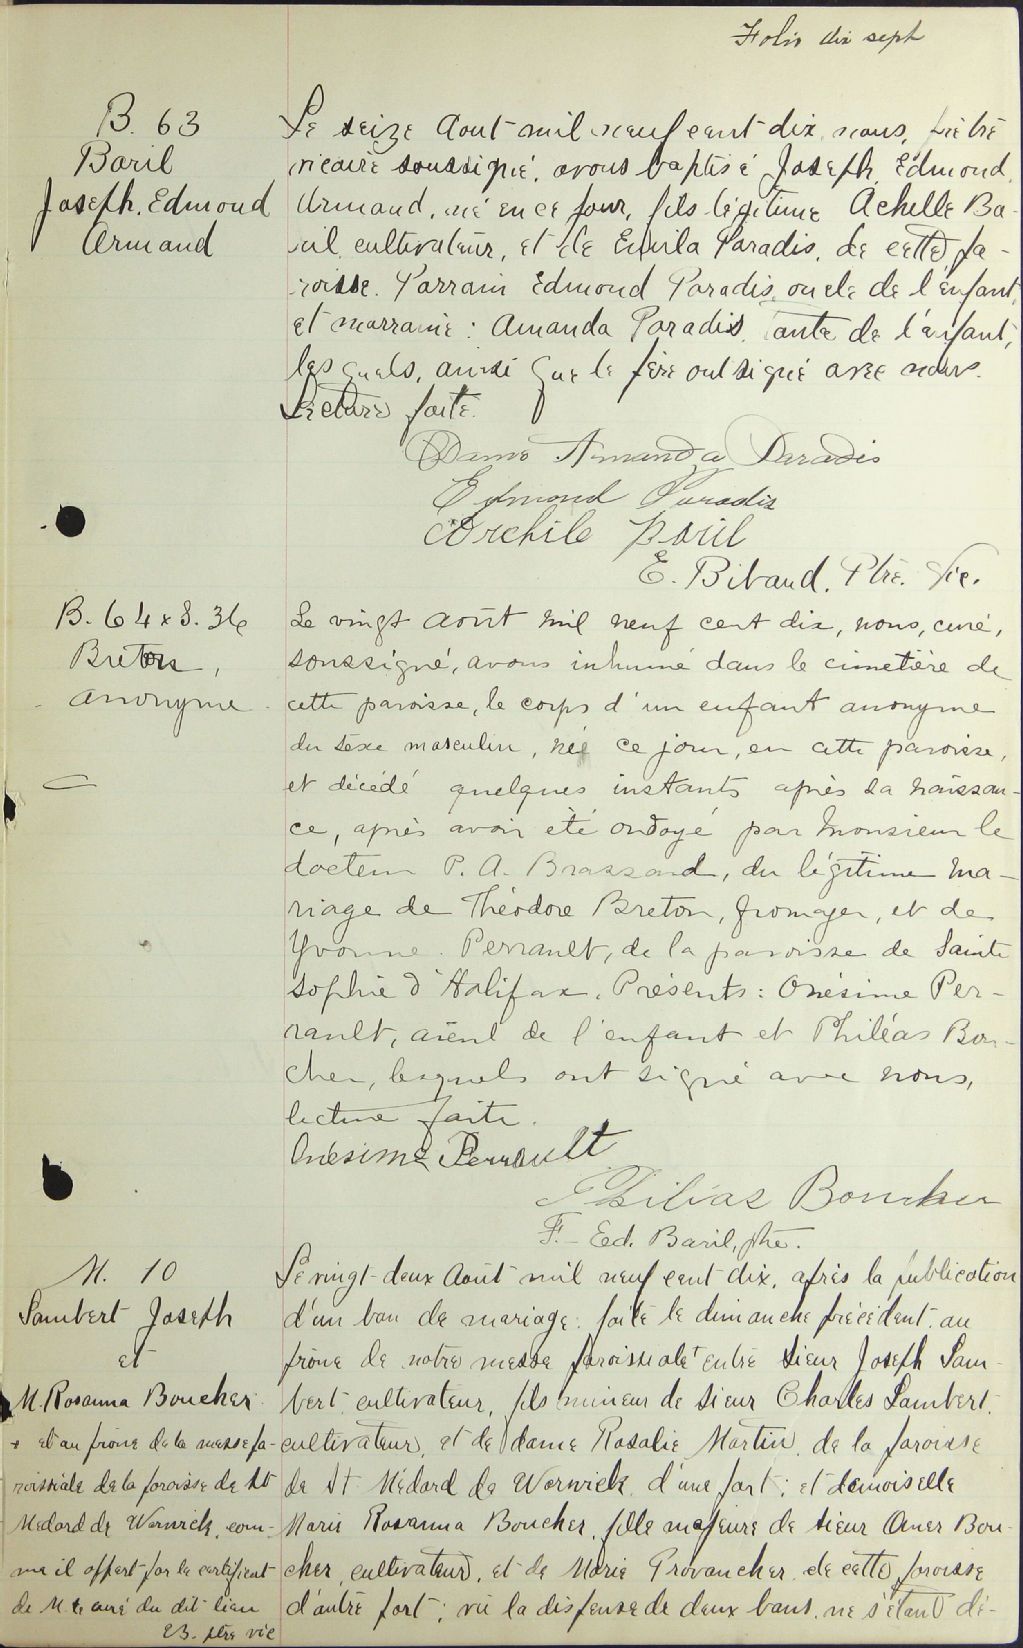 Folio dix sept
B. 63
Baril
Joseph, Edmond
Armand
Le seize Aout mil neuf cent dix, nous, prêtre
vicaire soussigné, avons baptisé Joseph, Edmond,
Armand, né en ce jour, fils légitime Achille Ba-
ril, cultivateur, et de Emila Paradis, de cette pa-
roisse. Parrain Edmond Paradis, oncle de l'enfant,
et marraine : Amanda Paradis, tante de l'enfant,
lesquels, ainsi que le père ont signé avec nous.
Lecture faite.
Dame Amanda Paradis
Edmond Paradis
Archile Baril
E. Bibaud, Ptre. Vic.
B. 64 x S. 36
Breton,
anonyme
Le vingt août mil neuf cent dix, nous, curé,
soussigné, avons inhumé dans le cimetière de
cette paroisse, le corps d'un enfant anonyme
du sexe masculin, né ce jour, en cette paroisse,
et décédé quelques instants après sa naissan-
ce, après avoir été ondoyé par Monsieur le
docteur P. A. Brassard, du légitime ma-
riage de Théodore Breton, fromager, et de
Yvonne Perrault, de la paroisse de Sainte
Sophie d'Halifax. Présents : Onésime Per-
rault, aïeul de l'enfant et Philéas Bou-
cher, lesquels ont signé avec nous,
lecture faite.
Onésime Perrault
Philias Boucher
F.-Ed. Baril, ptre.
M. 10
Lambert Joseph
et
M. Rosanna Boucher
+ et au prône de la messe pa-
roissiale de la paroisse de St
Médard de Warwick, com-
me il appert par le certificat
de M. le curé du dit lieu
E.B. ptre vic
Le vingt-deux Août mil neuf cent dix, après la publication
d'un ban de mariage faite le dimanche précédent, au
prône de notre messe paroissiale + entre Sieur Joseph Lam-
bert, cultivateur, fils mineur de Sieur Charles Lambert,
cultivateur, et de dame Rosalie Martin, de la paroisse
de St Médard de Warwick, d'une part ; et demoiselle
Marie Rosanna Boucher, fille majeure de Sieur Omer Bou-
cher, cultivateur, et de Marie Provancher, de cette paroisse
d'autre part ; vu la dispense de deux bans, ne s'étant dé-